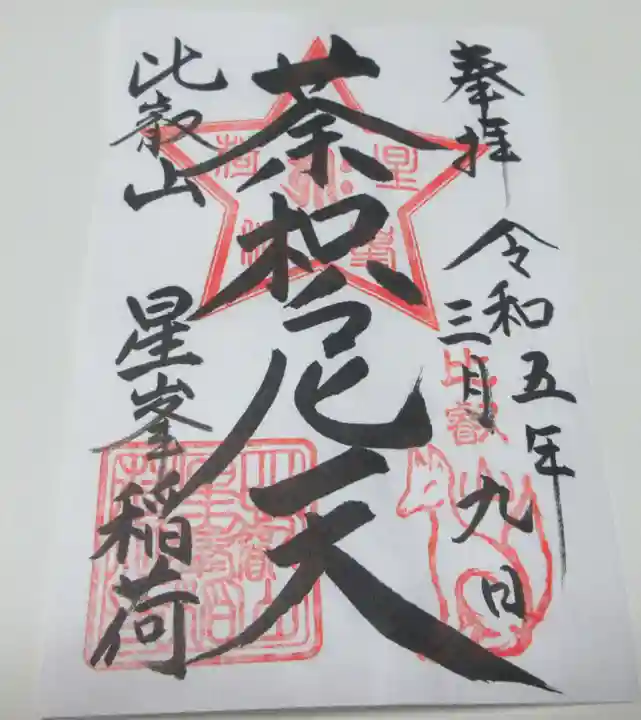 奉拝
令和五年
三月九日
荼枳尼天
比叡山
星峯稲荷
比叡